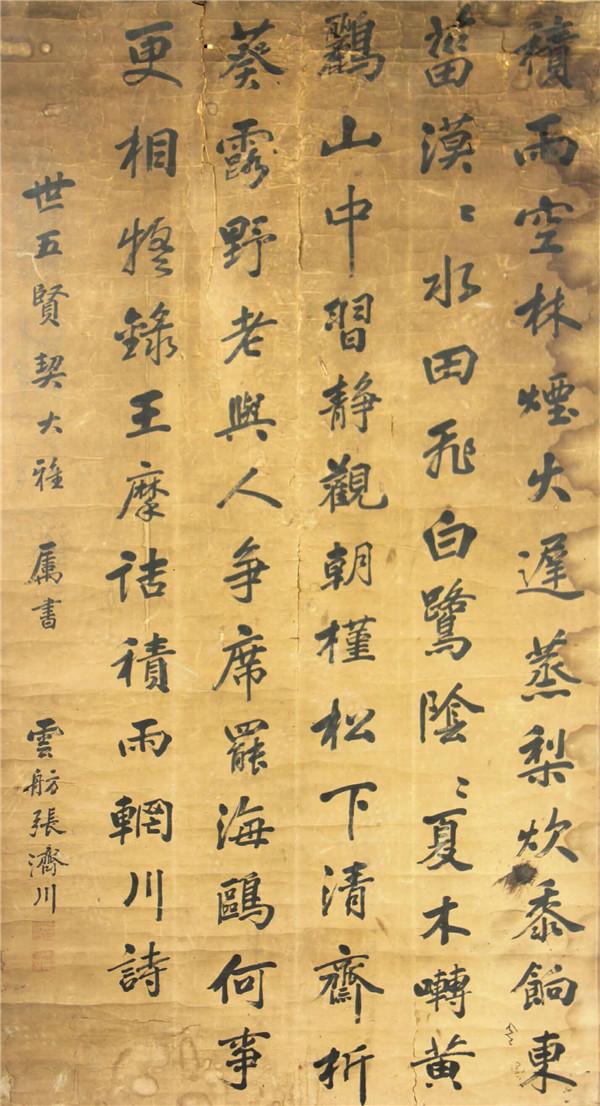 積雨空林煙火遲蒸梨炊黍餉東
菑漠〻水田飛白鷺陰〻夏木囀黄
鸝山中習静觀朝槿松下清齋折
葵露野老與人争席罷海鷗何事
更相疑錄王摩詰積雨輞川詩
世五賢契大雅 属書 雲舫張濟川